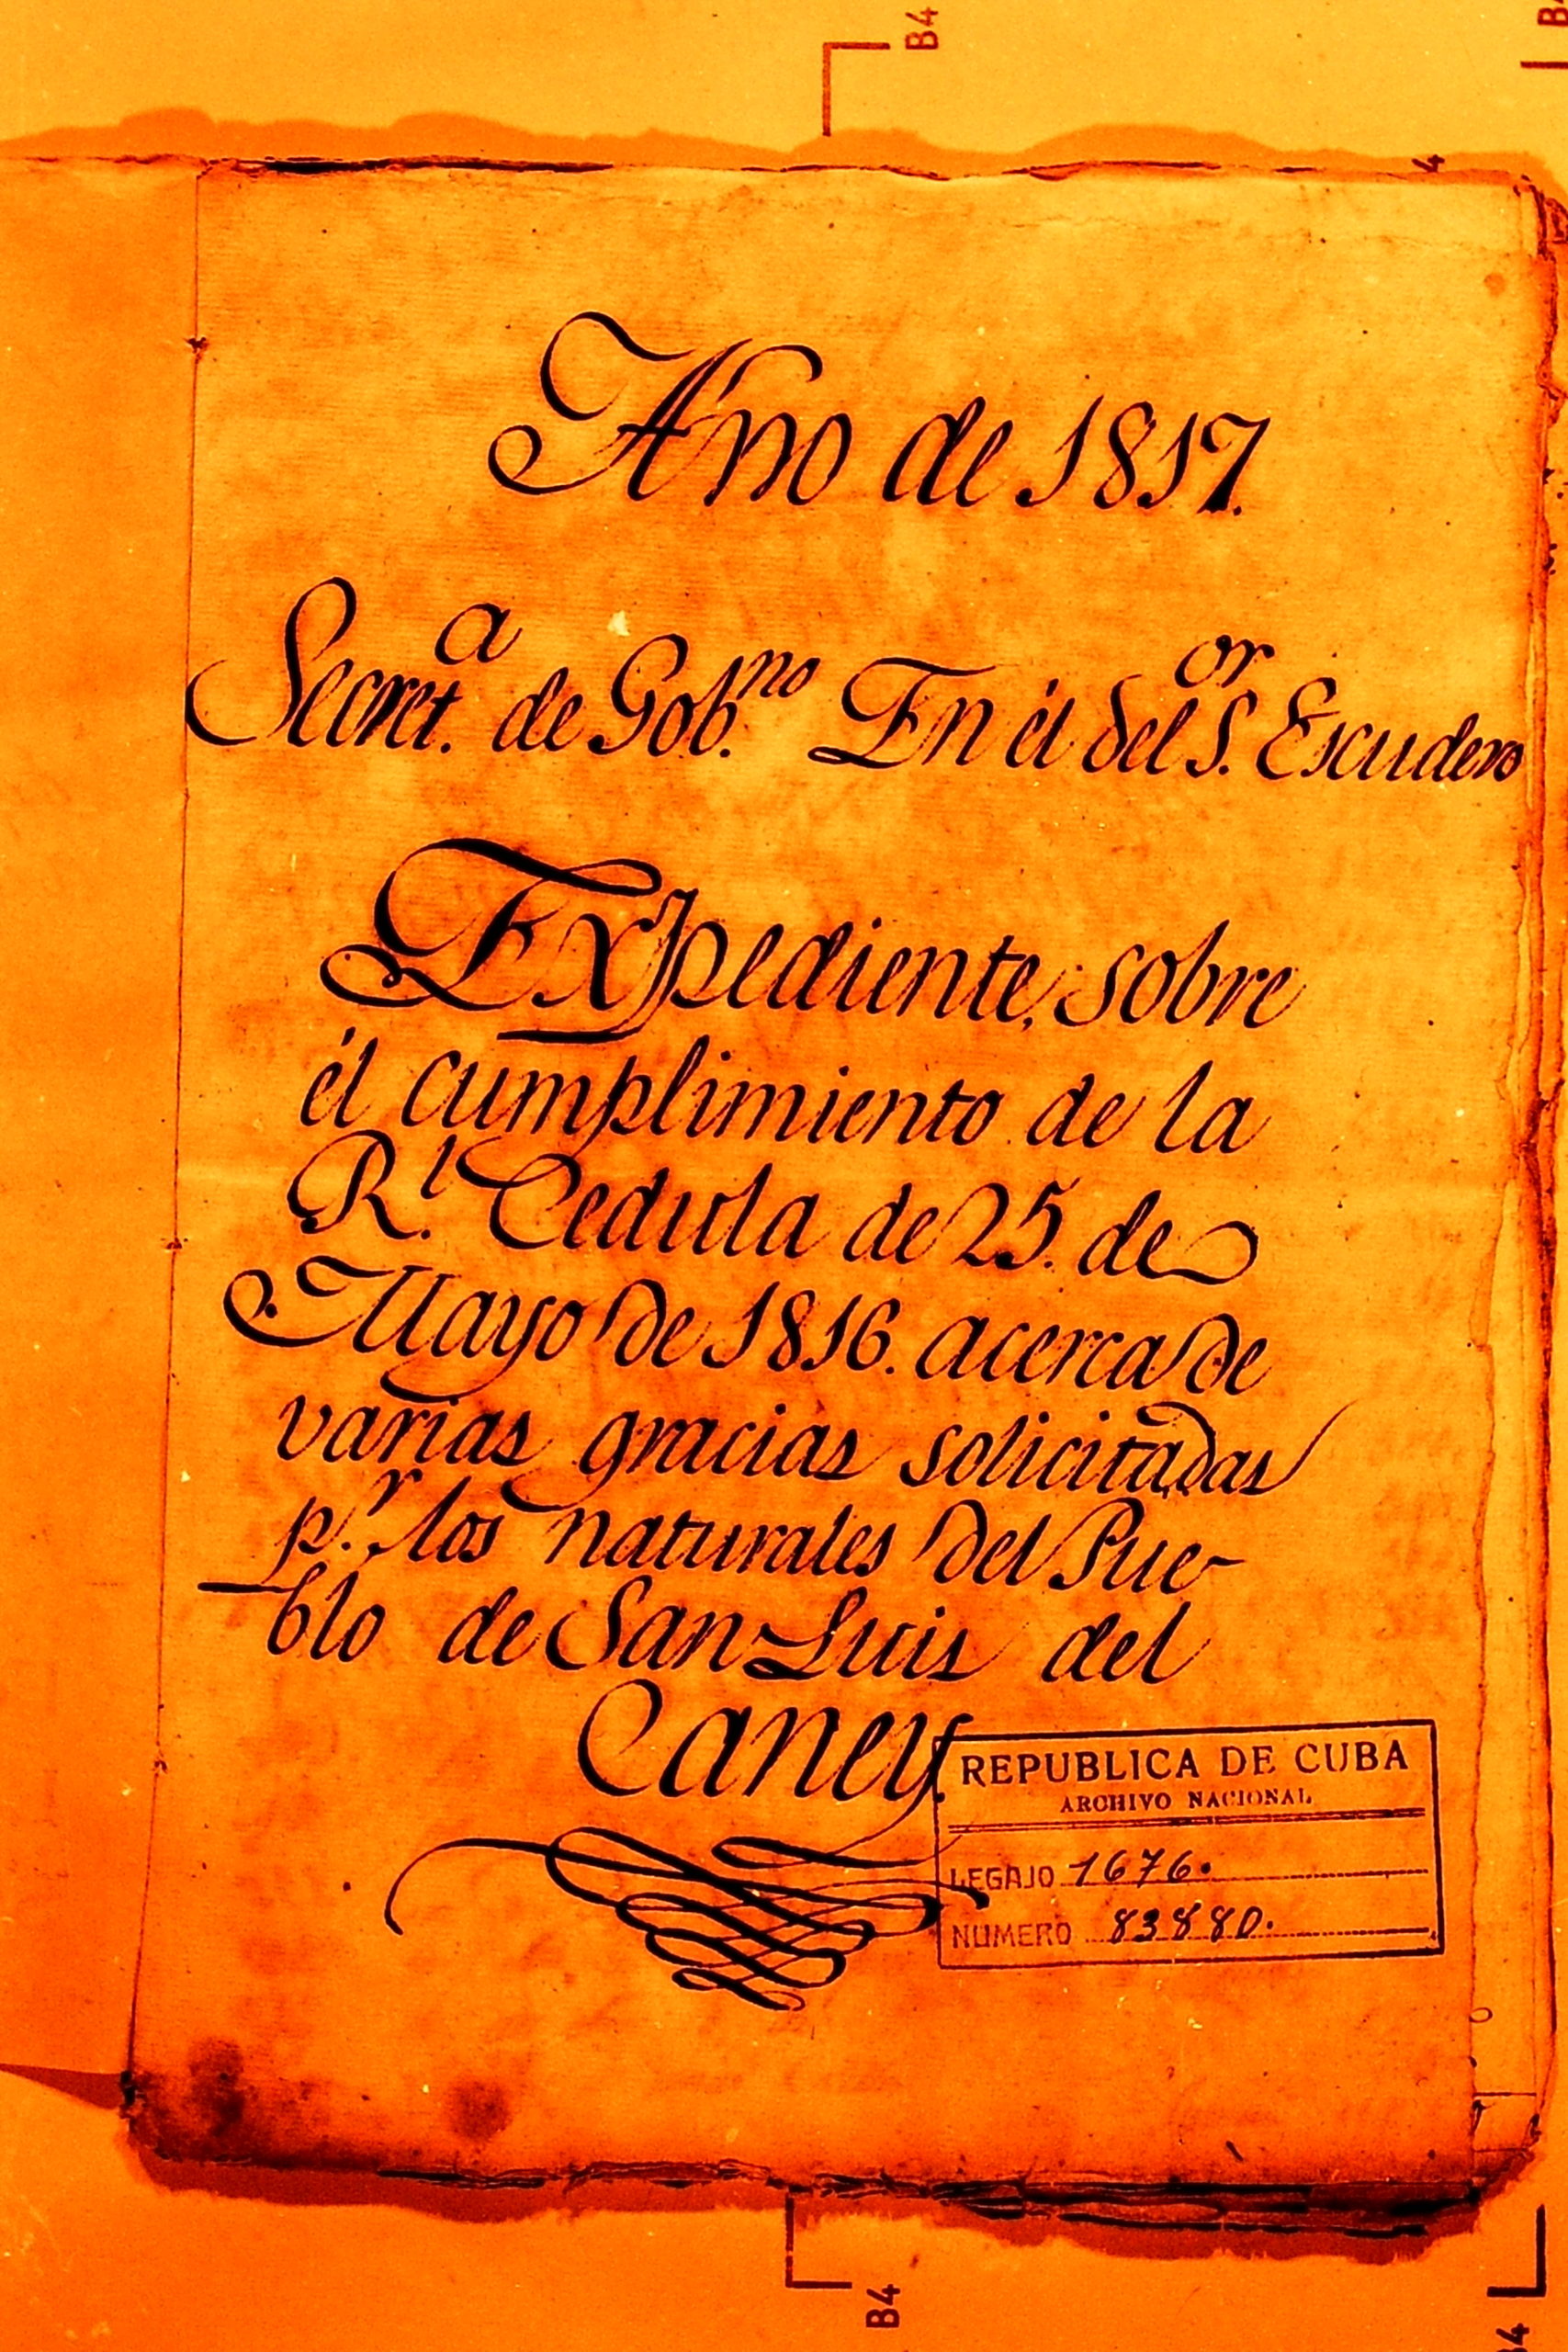 B4
4
Año de 1817.
Secret.a de Gob.no En él del S.or Escudero
Expediente, sobre
él cumplimiento de la
R.l Cedula de 25. de
Mayo de 1816. acerca de
varias gracias solicitadas
p.r los naturales del Pue-
blo de San Luis del
Caney.
REPUBLICA DE CUBA
ARCHIVO NACIONAL
LEGAJO 1676.
NUMERO 83880.
B4